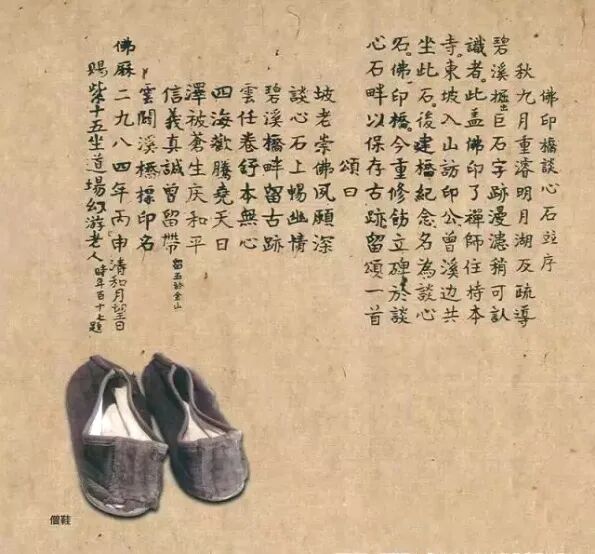 佛印橋談心石並序
秋九月重濬明月湖及疏導
碧溪掘出巨石字跡漫漶稍可認
識者。此盖佛印了禪師住持本
寺。東坡入山訪印公曾溪边共
坐此石。後建橋紀念名為談心
石。佛印橋。今重修飭立碑於談
心石畔以保存古跡留頌一首
頌曰
坡老崇佛夙願深
談心石上暢幽情
碧溪橋畔留古跡
雲任卷舒本無心
四海歡騰堯天日
澤被蒼生庆和平
信義真誠曾留帶 留玉於金山
雲關溪橋標印名
佛曆二九八四年丙申清和月望日
賜紫十五坐道場幻游老人時年百十七題
僧鞋